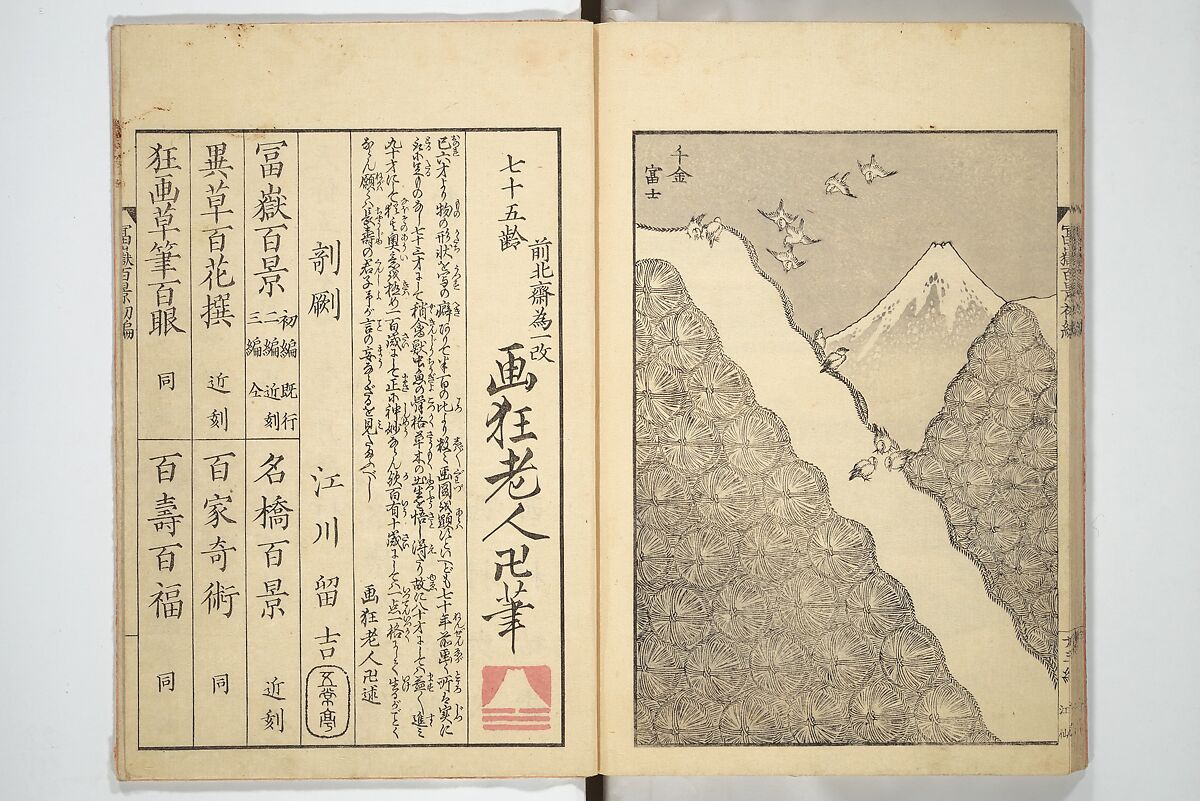 千金
富士
七十五齢
前北斎為一改
画狂老人卍筆
己六才より物の形状を写の癖ありて半百の比より数々画図を顕すといへども七十年前画く所は実に
取に足ものなし七十三才にして稍禽獣虫魚の骨格草木の出生を悟し得たり故に八十才にしては益々進み
九十才にして猶其奥意を極め一百歳にして正に神妙ならん歟百有十歳にしては一点一格にして生るがごとく
ならん願くは長寿の君子予が言の妄ならざるを見たまふべし
画狂老人卍述
剞劂　江川留吉
五常亭
冨嶽百景　初編既行　二編近刻　三編仝
名橋百景　近刻
異草百花撰　近刻
百家奇術　同
狂画草筆百眼　同
百壽百福　同
冨嶽百景初編